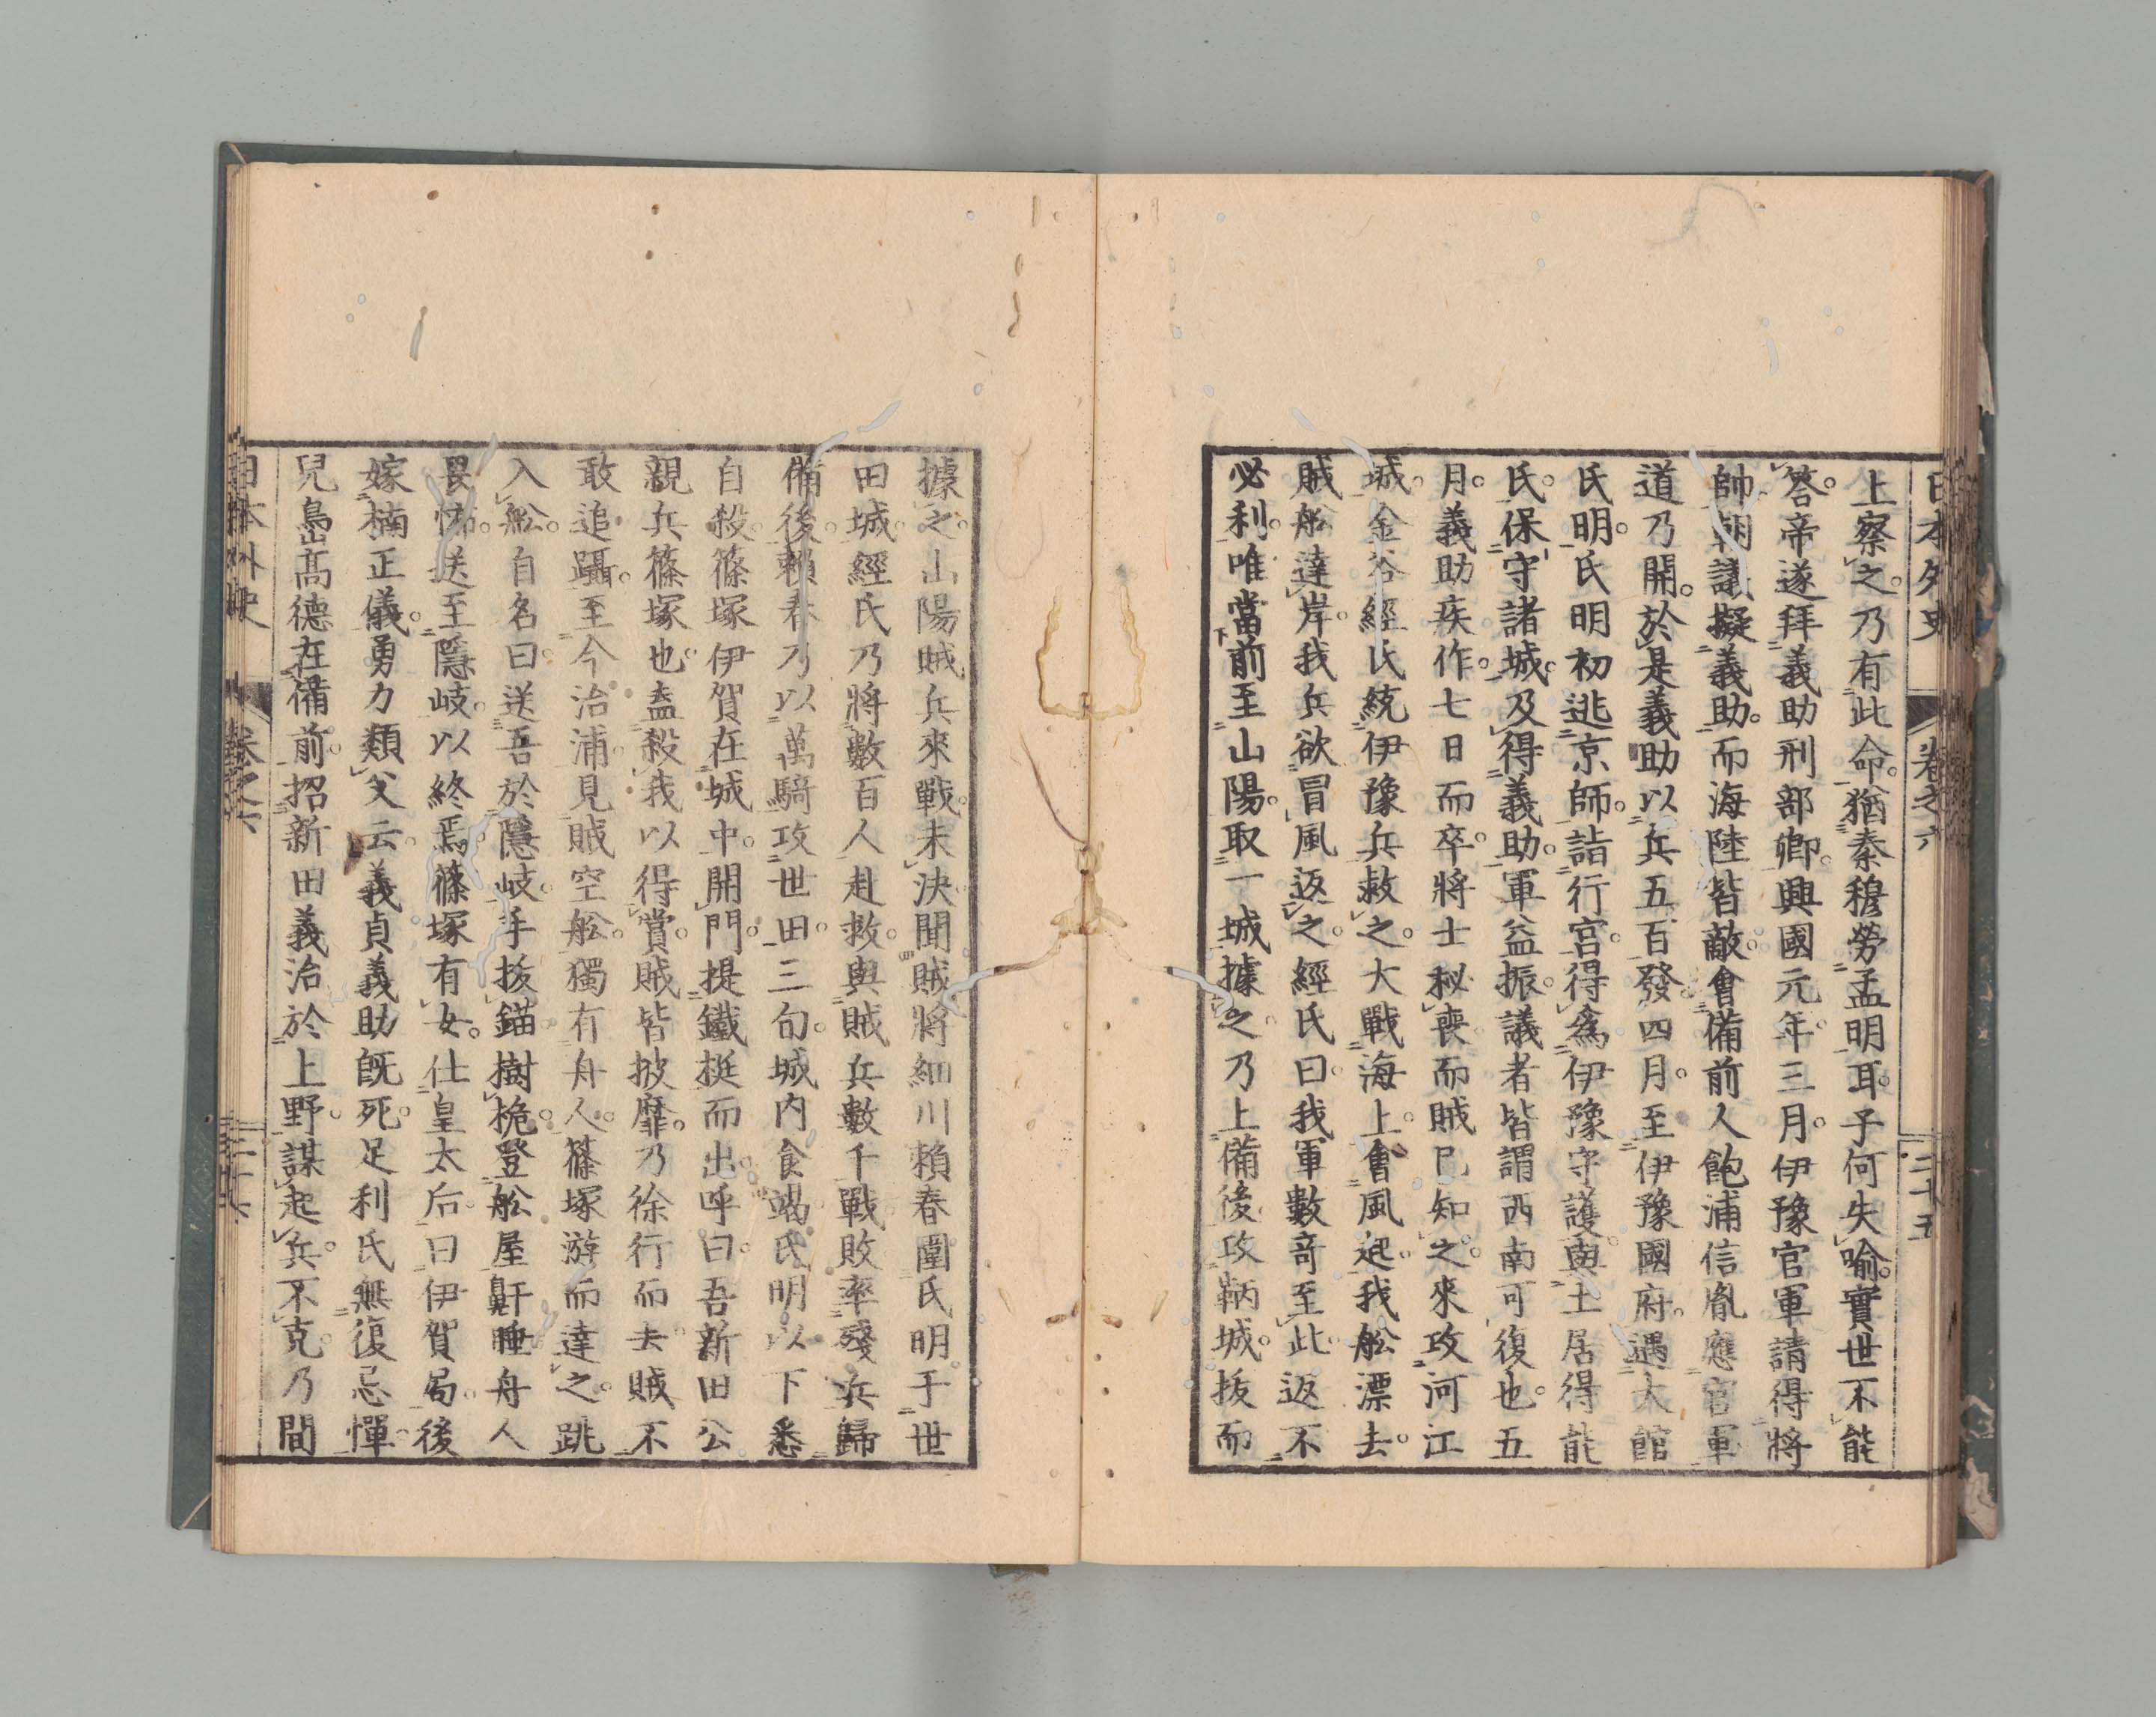 日本外史 卷之六 二十五
上察之。乃有此命。猶秦穆勞孟明耳。子何失喻。實世不能
答。帝遂拜義助刑部卿。興國元年三月。伊豫官軍請得將
帥。朝議擬義助。而海陸皆敵。會備前人飽浦信胤應官軍
道乃開。於是義助以兵五百發。四月。至伊豫國府。遇大館
氏明。氏明初逃京師。詣行宮。得為伊豫守護。與土居得能
氏。保守諸城。及得義助。軍益振。議者皆謂西南可復也。五
月。義助疾作。七日而卒。將士秘喪。而賊已知之。來攻河江
城。金谷經氏統伊豫兵救之。大戰海上。會風起。我舩漂去。
賊舩達岸。我兵欲冒風返之。經氏曰。我軍數奇至此。返不
必利。唯當前至山陽。取一城據之。乃上備後。攻鞆城。拔而
據之。山陽賊兵來戰。未決。聞賊將細川賴春圍氏明于世
田城。經氏乃將數百人赴救。與賊兵數千戰敗。率殘兵歸
備後。賴春乃以萬騎攻世田。三旬。城內食竭。氏明以下悉
自殺。篠塚伊賀在城中。開門。提鐵梃而出。呼曰。吾新田公
親兵篠塚也。盍殺我以得賞。賊皆披靡。乃徐行而去。賊不
敢追躡。至今治浦。見賊空舩。獨有舟人。篠塚游而達之。跳
入舩。自名曰。送吾於隱岐。手拔錨樹桅。登舩屋鼾睡。舟人
畏怖。送至隱岐。以終焉。篠塚有女。仕皇太后。曰伊賀局。後
嫁楠正儀。勇力類父云。義貞義助既死。足利氏無復忌憚。
兒島高德在備前。招新田義治於上野。謀起兵。不克。乃間
日本外史 卷之六 二十六